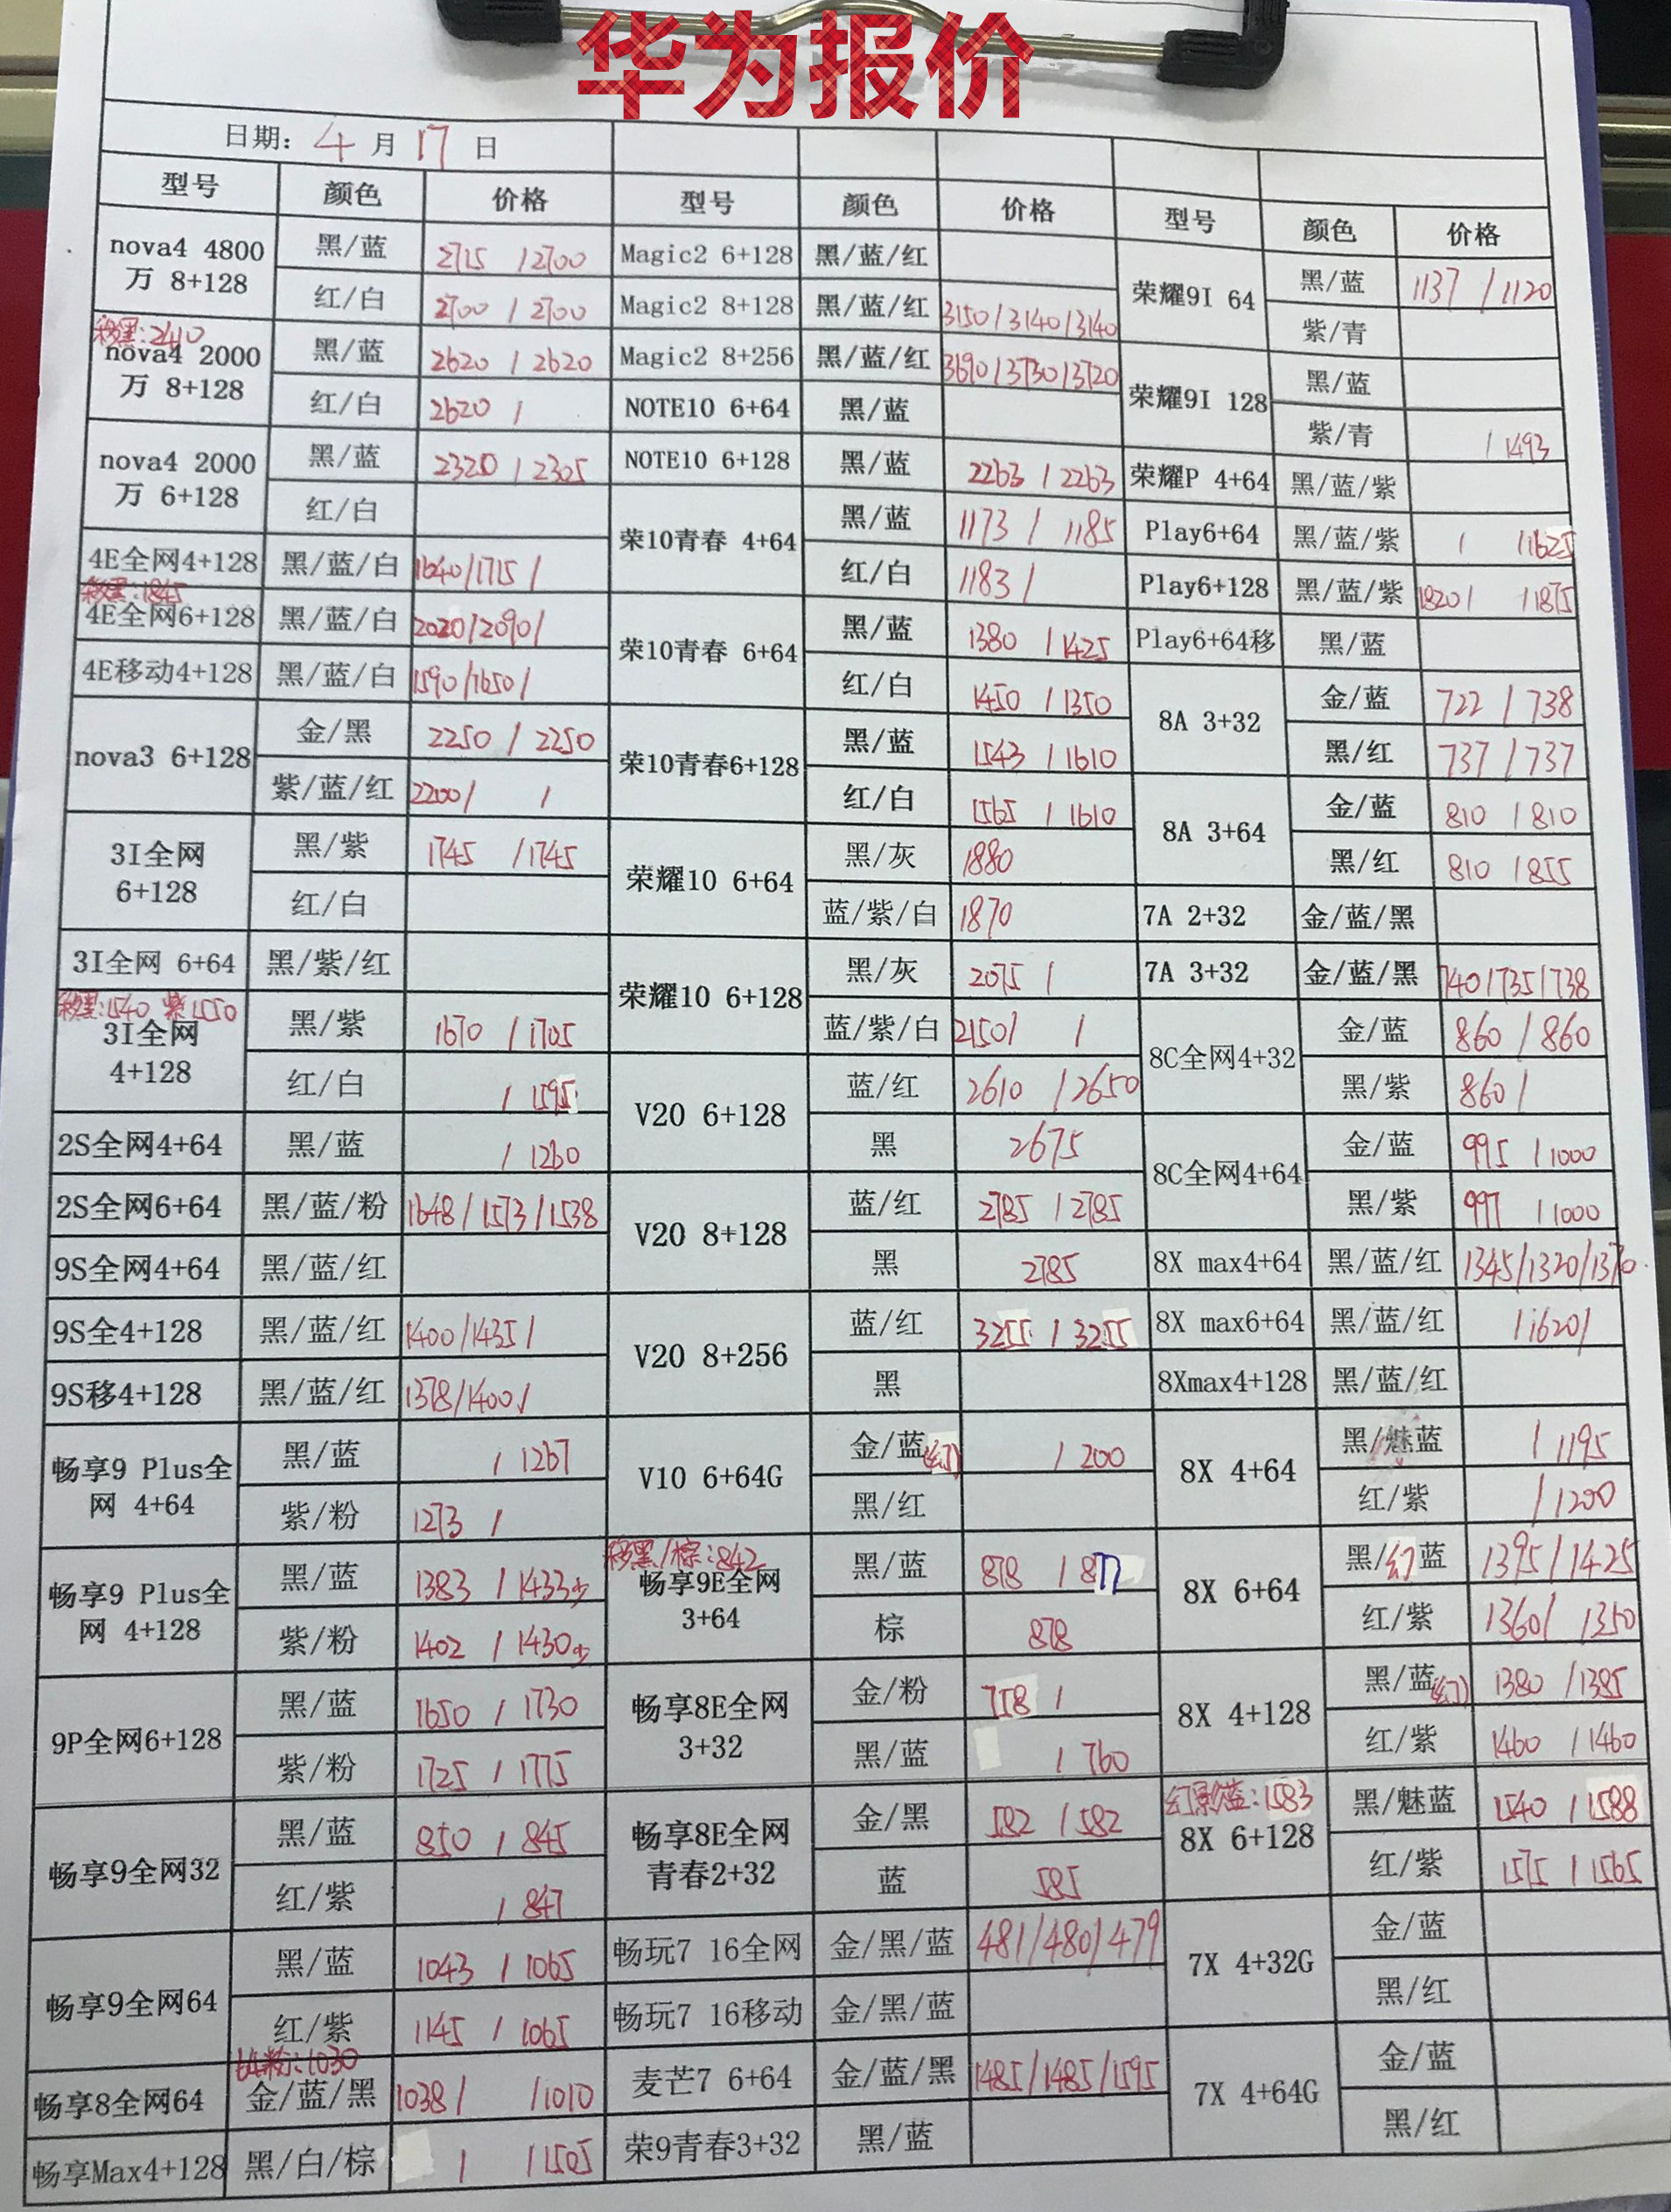 华为报价
日期: 4 月 17 日
型号 颜色 价格 型号 颜色 价格 型号 颜色 价格
nova4 4800万 8+128 黑/蓝 2715 /2700
红/白 2700 / 2700
移黑:2410
nova4 2000万 8+128 黑/蓝 2620 / 2620
红/白 2620 /
nova4 2000万 6+128 黑/蓝 2320 / 2305
红/白
4E全网4+128 黑/蓝/白 1640/1715/
移黑:1845
4E全网6+128 黑/蓝/白 2020/2090/
4E移动4+128 黑/蓝/白 1590/1650/
nova3 6+128 金/黑 2250 / 2250
紫/蓝/红 2200/ /
3I全网 6+128 黑/紫 1745 /1745
红/白
3I全网 6+64 黑/紫/红
移黑:1540 紫1550
3I全网 4+128 黑/紫 1670 / 1705
红/白 / 1595
2S全网4+64 黑/蓝 / 1260
2S全网6+64 黑/蓝/粉 1648/1573/1538
9S全网4+64 黑/蓝/红
9S全4+128 黑/蓝/红 1400/1435/
9S移4+128 黑/蓝/红 1378/1400/
畅享9 Plus全网 4+64 黑/蓝 / 1267
紫/粉 1273 /
畅享9 Plus全网 4+128 黑/蓝 1383 / 1433少
紫/粉 1402 / 1430少
9P全网6+128 黑/蓝 1650 / 1730
紫/粉 1725 / 1775
畅享9全网32 黑/蓝 850 / 845
红/紫 / 847
畅享9全网64 黑/蓝 1043 / 1065
红/紫 1145 / 1065
粉:1030
畅享8全网64 金/蓝/黑 1038/ /1010
畅享Max4+128 黑/白/棕 / /1505
Magic2 6+128 黑/蓝/红
Magic2 8+128 黑/蓝/红 3150/3140/3140
Magic2 8+256 黑/蓝/红 3690/3730/3720
NOTE10 6+64 黑/蓝
NOTE10 6+128 黑/蓝 2263 / 2263
荣10青春 4+64 黑/蓝 1173 / 1185
红/白 1183 /
荣10青春 6+64 黑/蓝 1380 / 1425
红/白 1450 / 1350
荣10青春6+128 黑/蓝 1543 / 1610
红/白 1565 / 1610
荣耀10 6+64 黑/灰 1880
蓝/紫/白 1870
荣耀10 6+128 黑/灰 2075 /
蓝/紫/白 2150/ /
V20 6+128 蓝/红 2610 /2650
黑 2675
V20 8+128 蓝/红 2785 / 2785
黑 2785
V20 8+256 蓝/红 3255 / 3255
黑
V10 6+64G 金/蓝(幻) / 200
黑/红
移黑/棕:842
畅享9E全网 3+64 黑/蓝 878 / 877
棕 878
畅享8E全网 3+32 金/粉 758 /
黑/蓝 / 760
畅享8E全网青春2+32 金/黑 582 / 582
蓝 585
畅玩7 16全网 金/黑/蓝 481/480/479
畅玩7 16移动 金/黑/蓝
麦芒7 6+64 金/蓝/黑 1485/1485/1595
荣9青春3+32 黑/蓝
荣耀9I 64 黑/蓝 1137 / 1120
紫/青
荣耀9I 128 黑/蓝
紫/青 / 1493
荣耀P 4+64 黑/蓝/紫
Play6+64 黑/蓝/紫 / /1625
Play6+128 黑/蓝/紫 1820/ /1875
Play6+64移 黑/蓝
8A 3+32 金/蓝 722 / 738
黑/红 737 / 737
8A 3+64 金/蓝 810 / 810
黑/红 810 / 855
7A 2+32 金/蓝/黑
7A 3+32 金/蓝/黑 740/735/738
8C全网4+32 金/蓝 860 / 860
黑/紫 860 /
8C全网4+64 金/蓝 995 / 1000
黑/紫 997 / 1000
8X max4+64 黑/蓝/红 1345/1320/1370
8X max6+64 黑/蓝/红 /1620/
8Xmax4+128 黑/蓝/红
8X 4+64 黑/魅蓝 / 1195
红/紫 / 1200
8X 6+64 黑/幻蓝 1395/1425
红/紫 1360/ 1350
8X 4+128 黑/蓝(幻) 1380 /1385
红/紫 1460 / 1460
幻影蓝:1583
8X 6+128 黑/魅蓝 1540 / 1588
红/紫 1575 / 1565
7X 4+32G 金/蓝
黑/红
7X 4+64G 金/蓝
黑/红